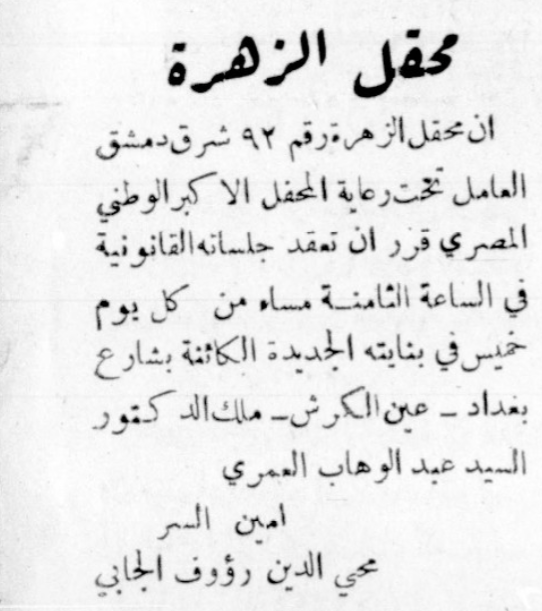 محفل الزهرة
ان محفل الزهرة رقم ٩٢ شرق دمشق
العامل تحت رعاية المحفل الاكبر الوطني
المصري قرر ان تعقد جلساته القانونية
في الساعة الثامنـة مساء من كل يوم
خميس في بنايته الجديدة الكائنة بشارع
بغداد ـ عين الكرش ـ ملك الدكتور
السيد عبد الوهاب العمري
امين السر
محي الدين رؤوف الجابي